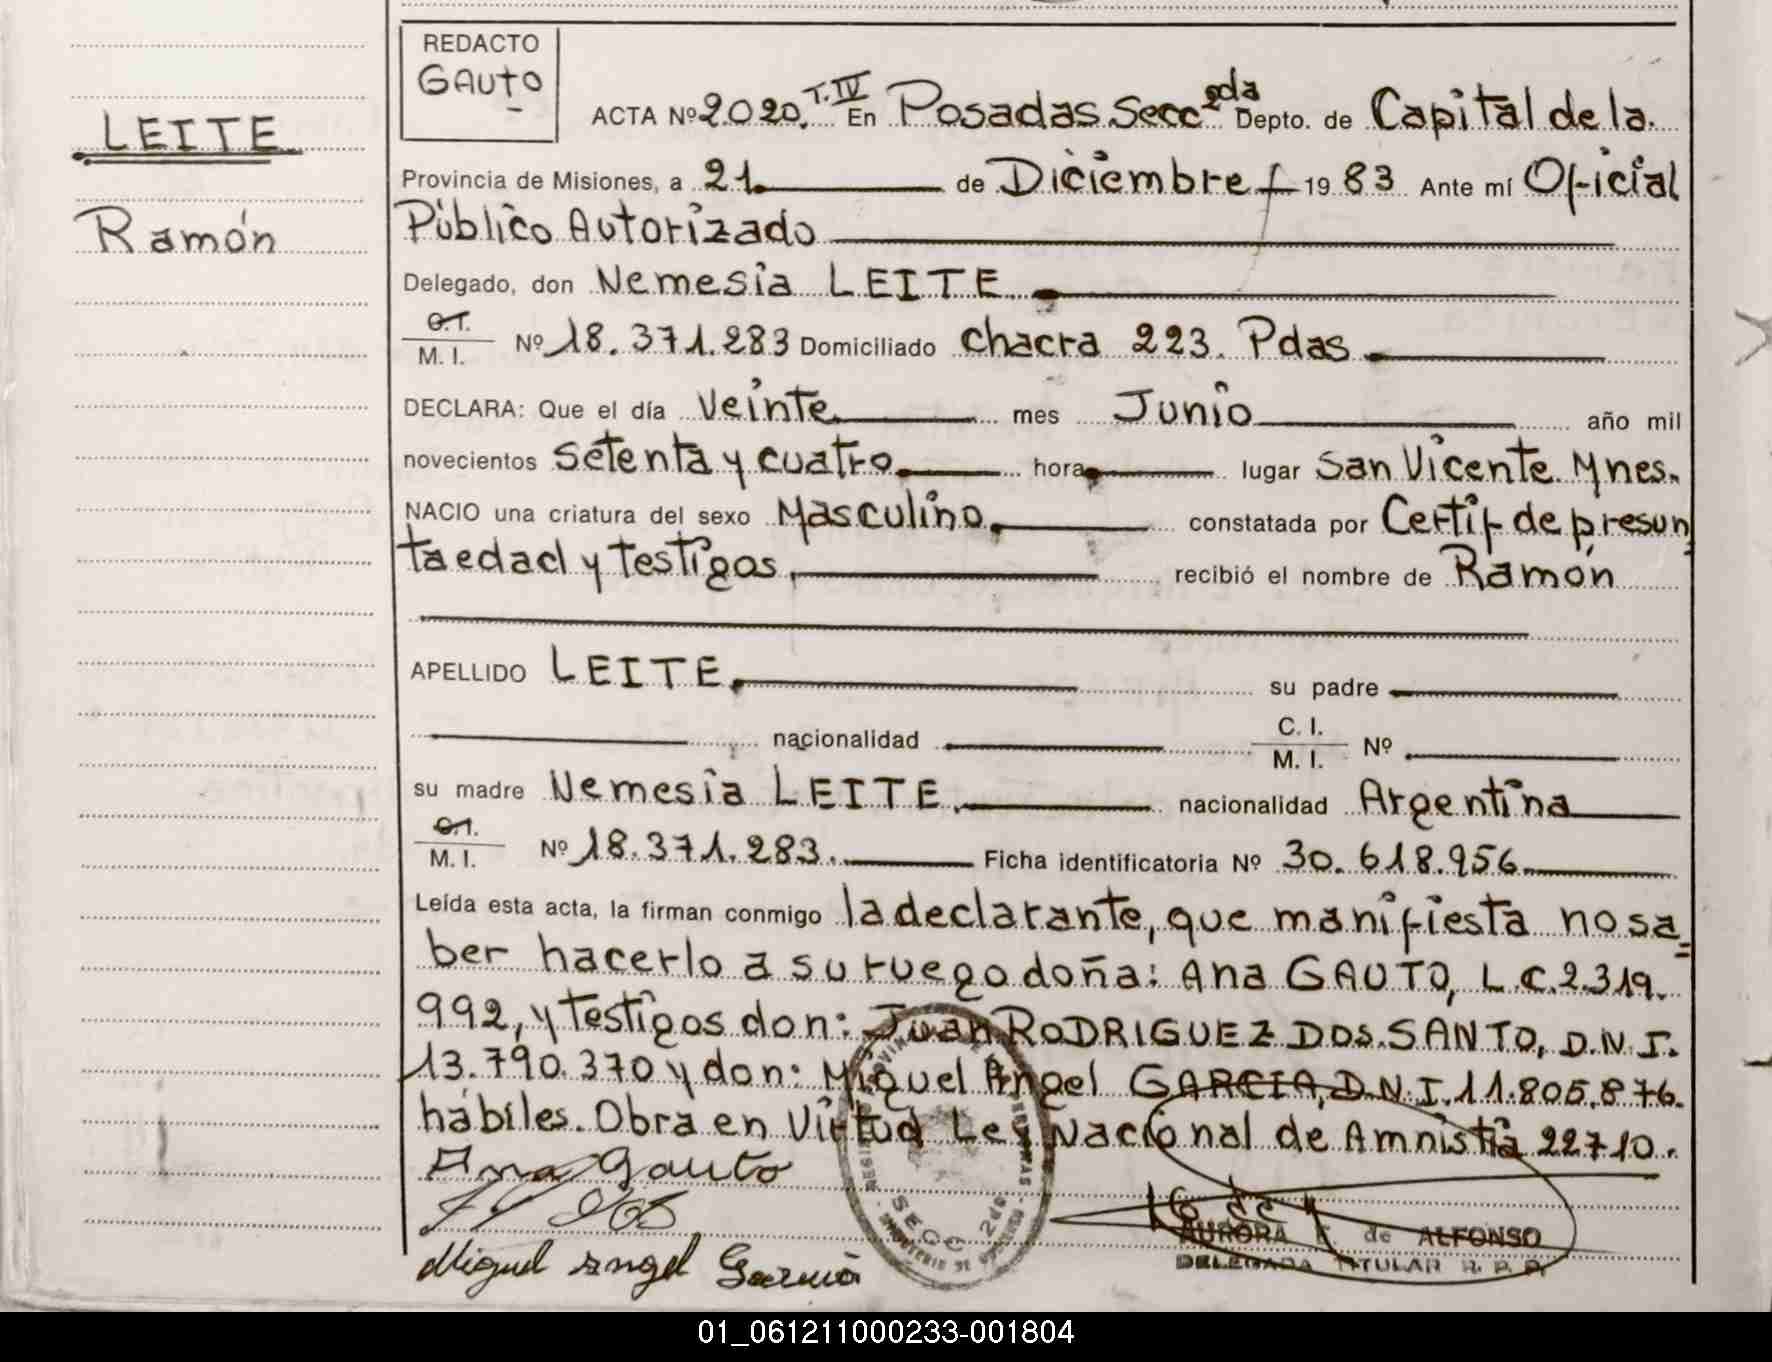 REDACTO
GAUTO
LEITE
Ramón
ACTA Nº 2020. T.IV En Posadas Secc 2da Depto. de Capital de la
Provincia de Misiones, a 21 de Diciembre 19 83 Ante mí Oficial
Público Autorizado
Delegado, don Nemesia LEITE
C.I.
M. I. Nº 18.371.283 Domiciliado chacra 223. Pdas
DECLARA: Que el día veinte mes Junio año mil
novecientos setenta y cuatro hora lugar San Vicente Mnes.
NACIO una criatura del sexo Masculino, constatada por Certif de presun
ta edad y testigos, recibió el nombre de Ramón
APELLIDO LEITE, su padre
nacionalidad C. I.
M. I. Nº
su madre Nemesia LEITE. nacionalidad Argentina
C.I.
M. I. Nº 18.371.283. Ficha identificatoria Nº 30.618.956
Leída esta acta, la firman conmigo la declarante, que manifiesta no sa=
ber hacerlo a su ruego doña: Ana GAUTO, L.C.2.319.
992, y testigos don: Juan RODRIGUEZ DOS SANTO, D.N.I.
13.790.370 y don: Miguel Angel GARCIA, D.N.I. 11.805.876.
hábiles. Obra en Virtud Ley Nacional de Amnistía 22710.
Ana Gauto
Miguel Angel Garcia
SECC 2da
AURORA de ALFONSO
DELEGADA TITULAR R. P. P.
01_061211000233-001804